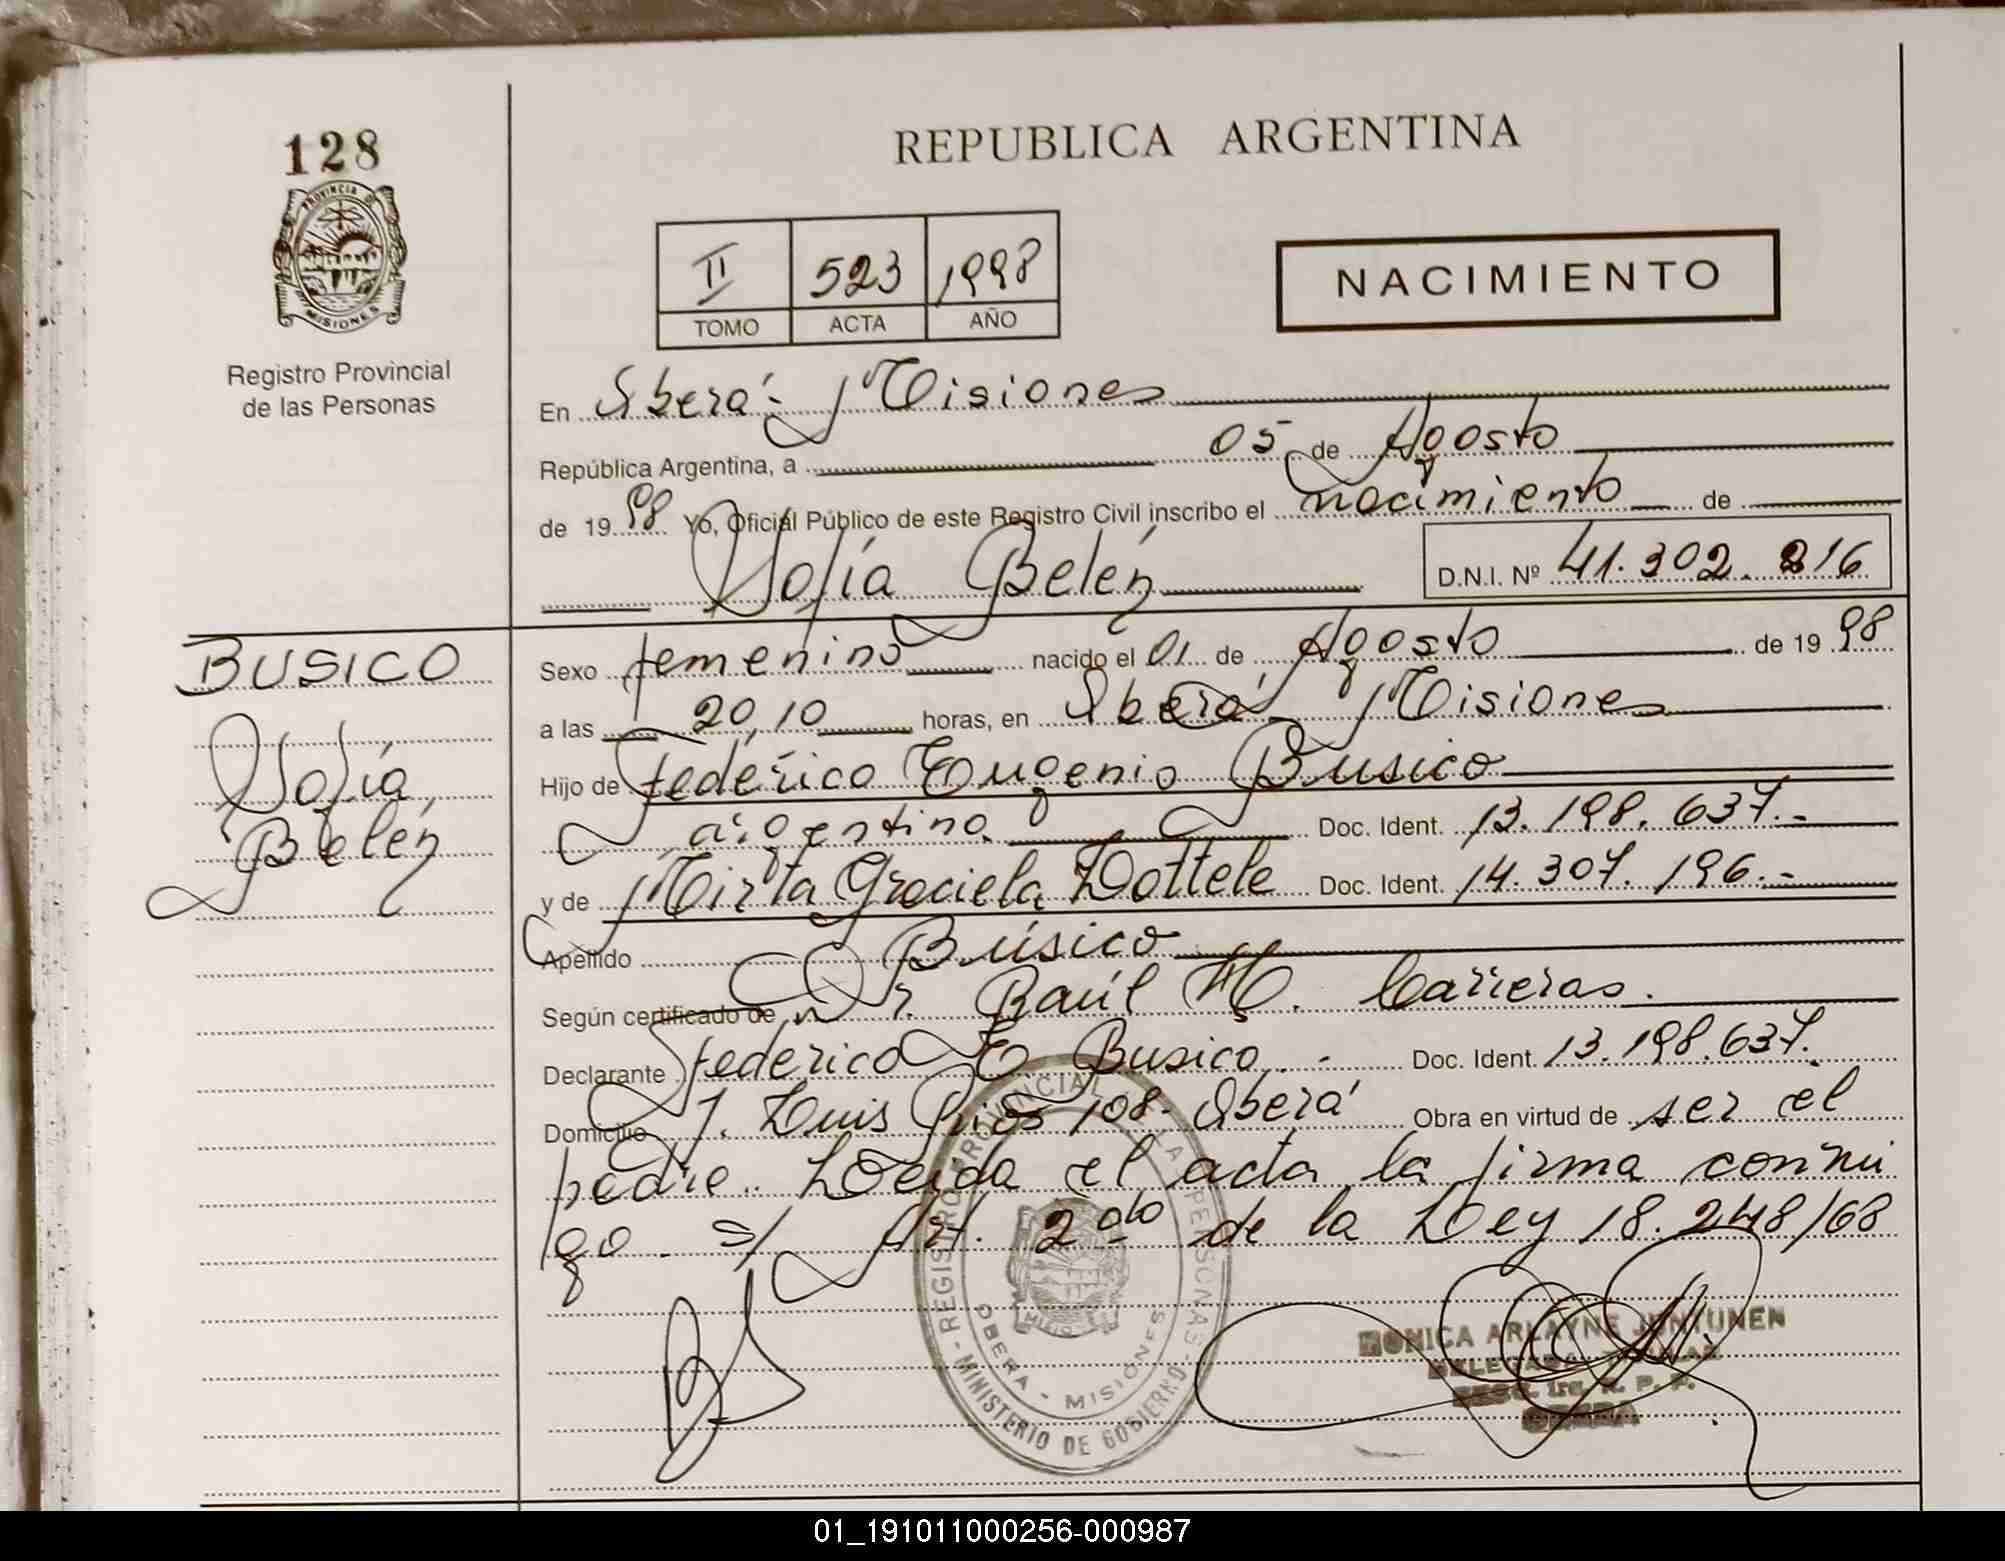 128
PROVINCIA DE
MISIONES
Registro Provincial
de las Personas
REPUBLICA ARGENTINA
II 523 1998
TOMO ACTA AÑO
NACIMIENTO
En Oberá - Misiones
República Argentina, a 05 de Agosto
de 1998 Yo, Oficial Público de este Registro Civil inscribo el nacimiento de
Sofía Belén D.N.I. Nº 41.302.216
BUSICO
Sofía
Belén
Sexo femenino nacido el 01 de Agosto de 1998
a las 20,10 horas, en Oberá Misiones
Hijo de Federico Eugenio Busico
argentino Doc. Ident. 13.198.637.-
y de Mirta Graciela Dottele Doc. Ident. 14.307.196.-
Apellido Busico
Según certificado de Dr. Raúl H. Carreras.
Declarante Federico E Busico.- Doc. Ident. 13.198.637.
Domicilio J. Luis Ríos 108- Oberá Obra en virtud de ser el
padre. Leída el acta la firma conmi
go. s/ Art. 2do de la Ley 18.248/68
- REGISTRO PROVINCIAL DE LAS PERSONAS -
MINISTERIO DE GOBIERNO
OBERA - MISIONES
MONICA ARLAYNE JUNTUNEN
DELEGADA TITULAR
SECC. 1ra. R. P. P.
OBERA
01_191011000256-000987